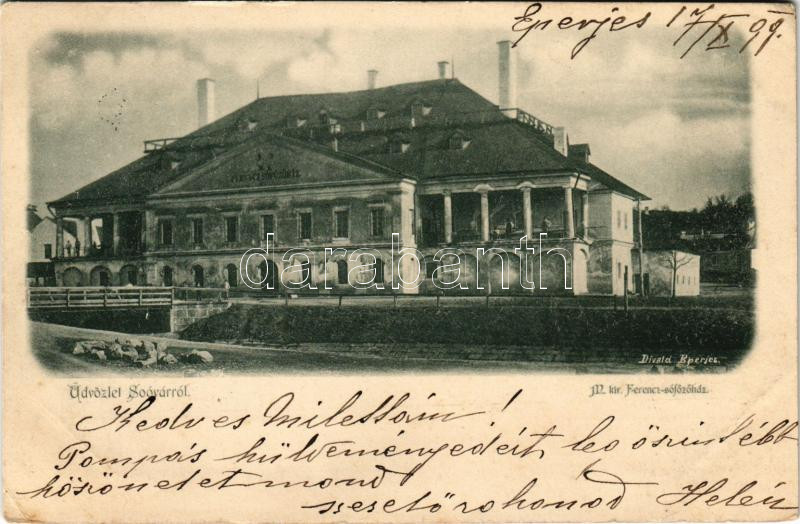 Eperjes 17/X 99.
FERENCZ SÓFŐZŐHÁZ
darabanth
Divald Eperjes.
Üdvözlet Soóvárról.
M. kir. Ferencz-sófőzőház.
Kedves Milettám!
Pompás küldeményedért legőszintébb
köszönetet mond
szerető rokonod Helén